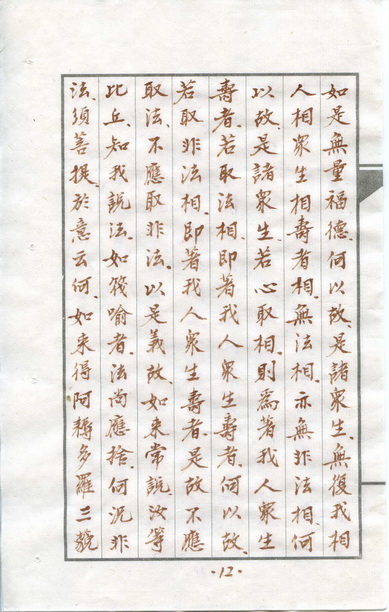 如是無量福德、何以故、是諸眾生、無復我相
人相眾生相壽者相、無法相、亦無非法相、何
以故、是諸眾生、若心取相、則為著我人眾生
壽者、若取法相、即著我人眾生壽者、何以故、
若取非法相、即著我人眾生壽者、是故不應
取法、不應取非法、以是義故、如來常說、汝等
比丘、知我說法、如筏喻者、法尚應捨、何況非
法、須菩提、於意云何、如來得阿耨多羅三藐
·12·